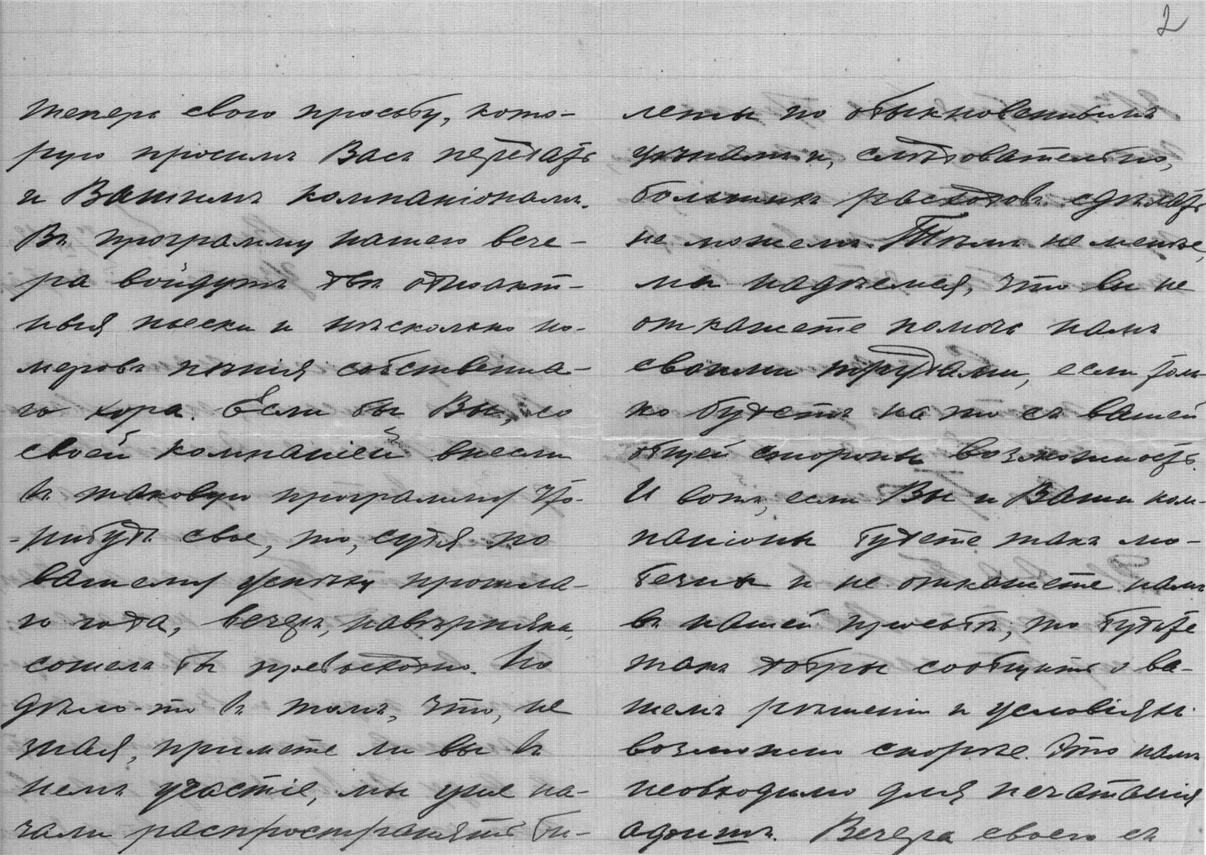 2
теперь свою просьбу, кото-
рую просимъ Васъ передать
и Вашимъ компаніонамъ.
Въ программу нашего вече-
ра войдутъ двѣ одноакт-
ныя пьески и нѣсколько но-
меровъ пѣнія собственна-
го хора. Если бы Вы, со
своей компаніей внесли
въ таковую программу что-
-нибудь свое, то, судя по
вашему успѣху прошла-
го года, вечеръ, навѣрняка,
сошелъ бы превосходно. Но
дѣло-то въ томъ, что, не
зная, примете ли вы въ
немъ участіе, мы уже на-
чали распространять би-
леты по обыкновеннымъ
цѣнамъ и, слѣдовательно,
большихъ расходовъ сдѣлать
не можемъ. Тѣмъ не менѣе,
мы надѣемся, что вы не
откажете помочь намъ
своими трудами, если толь-
ко будетъ на то съ вашей
общей стороны возможность.
И вотъ, если Вы и Ваши ком-
паніоны будете такъ лю-
безны и не откажете намъ
въ нашей просьбѣ, то будьте
такъ добры сообщить о ва-
шемъ рѣшеніи и условіяхъ
возможно скорѣе. Это намъ
необходимо для печатанія
афишъ. Вечера своего съ